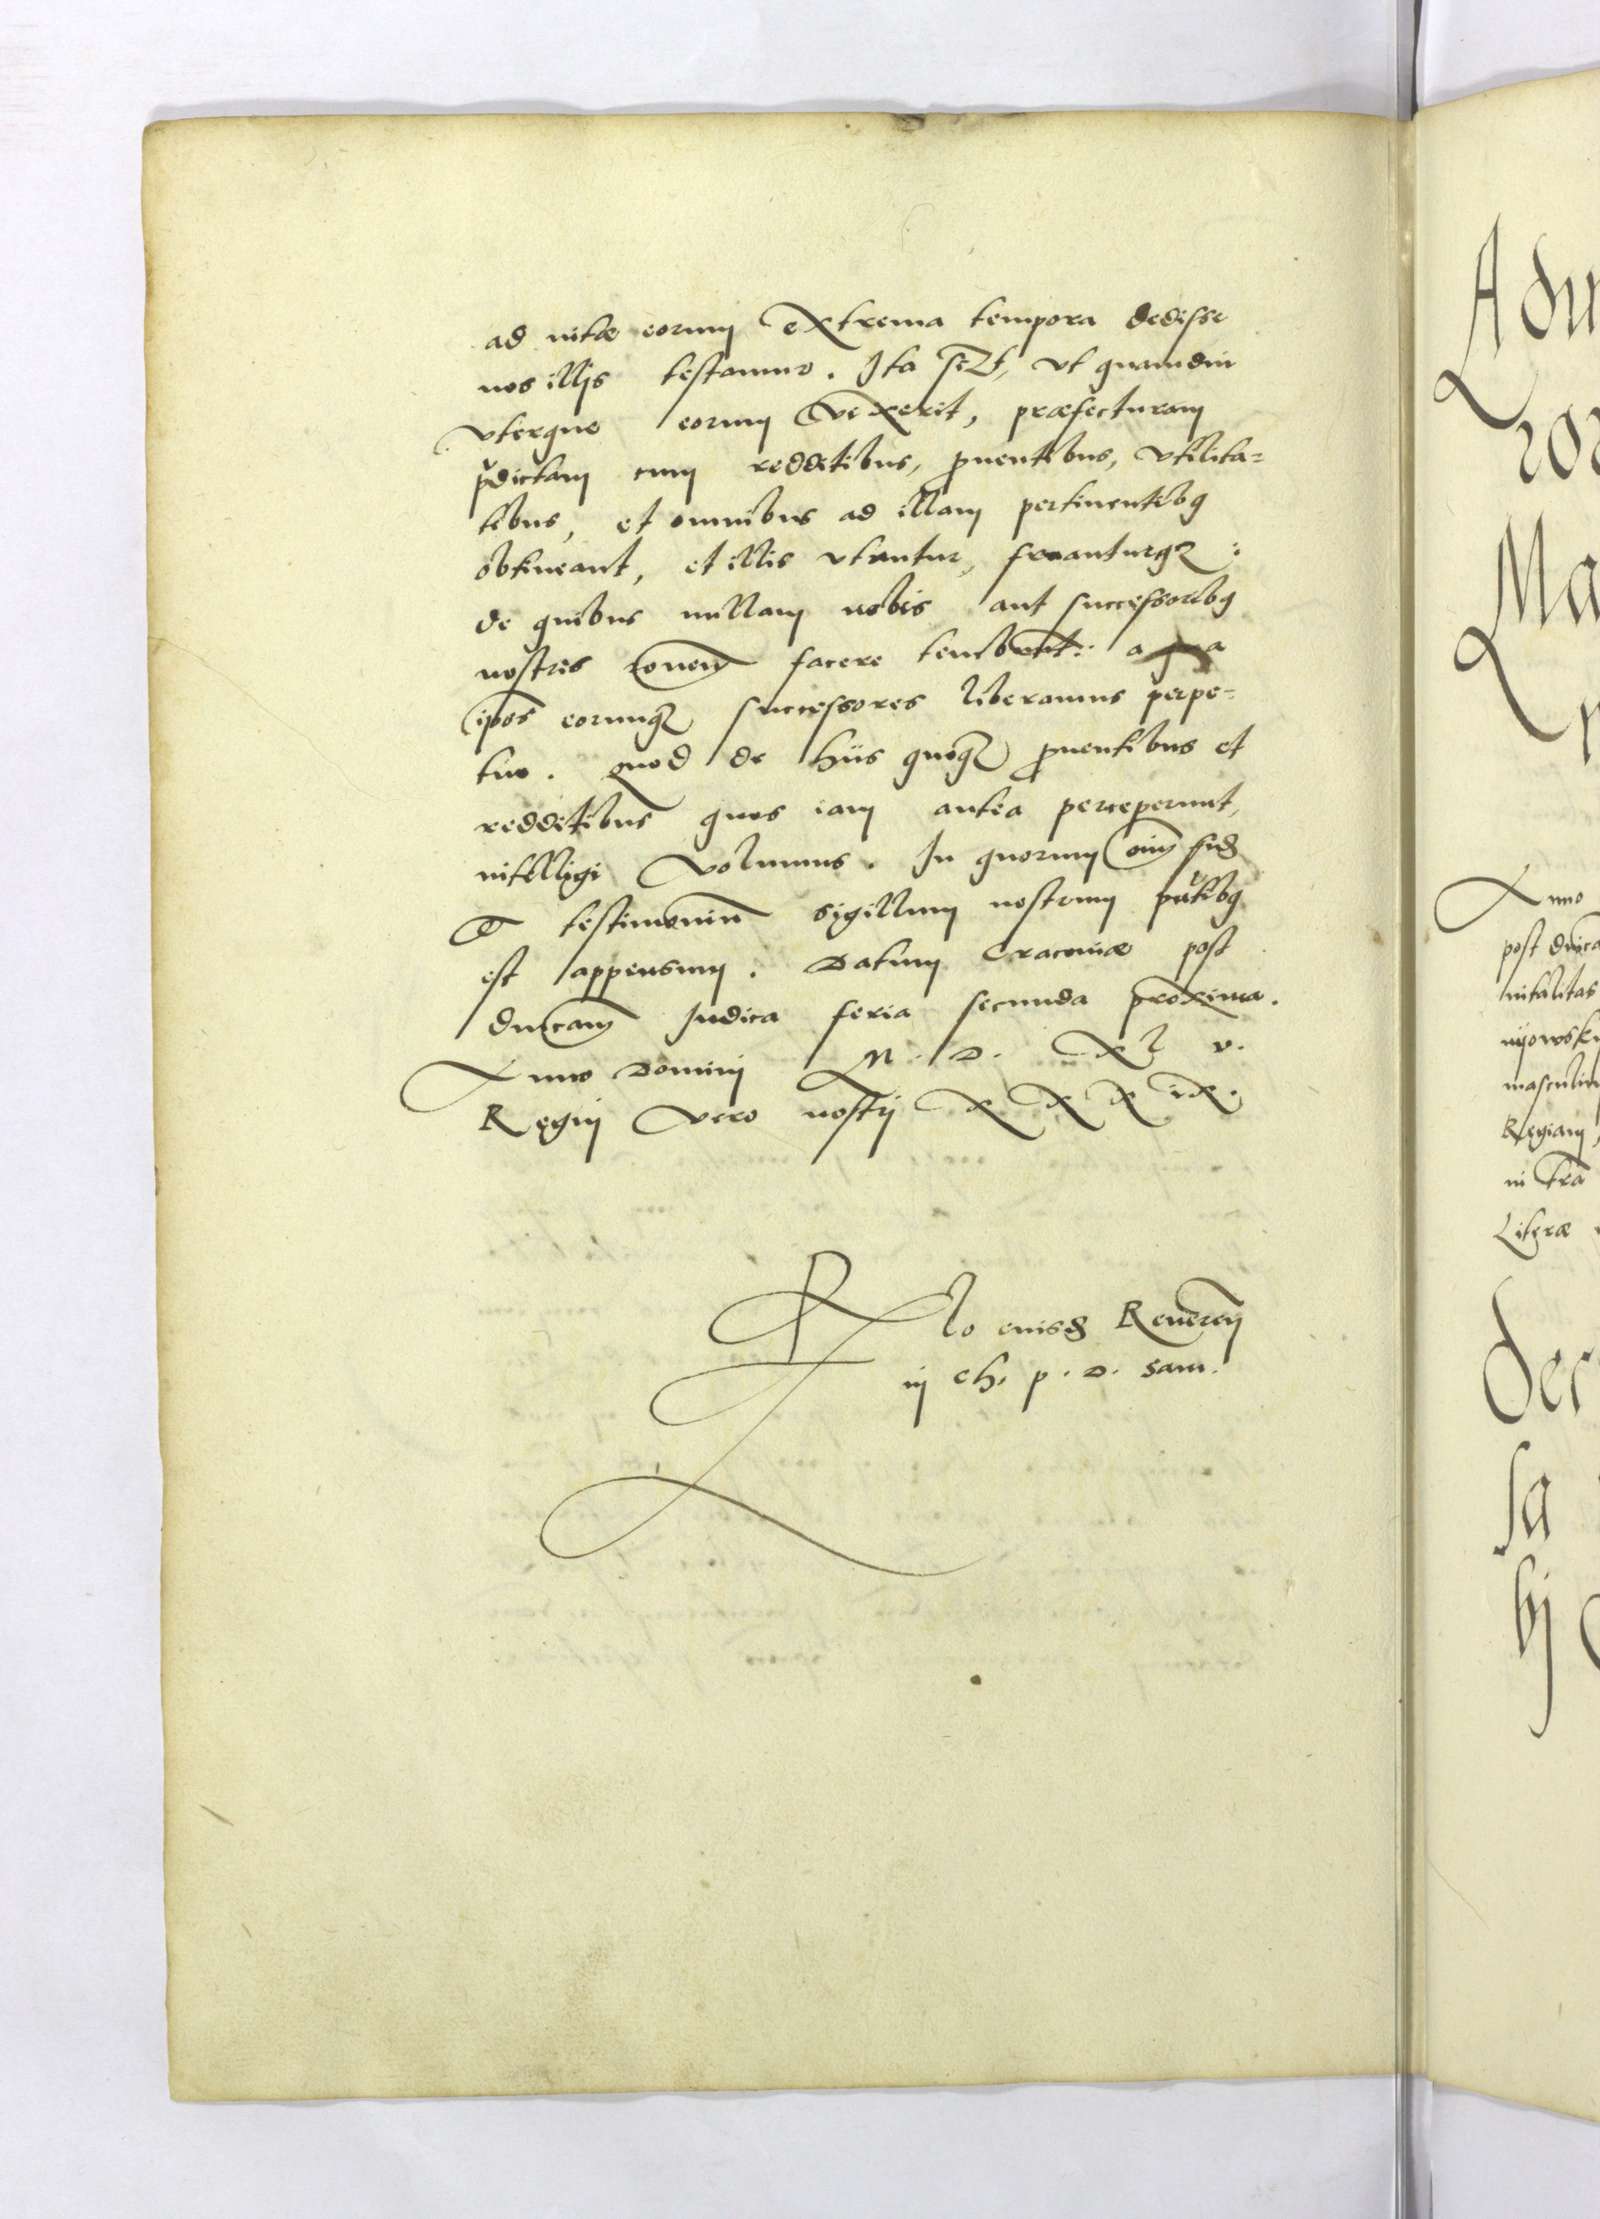 ad vitæ eorum extrema tempora dedisse
nos illis testamur. Ita sczt, vt quamdiu
vterque eorum vixerit, præfecturam
pdictam cum redditibus, prouentibus, vtilita=
tibus, et omnibus ad illam pertinentibq
obtineant, et illis vtantur, fruanturqz:
de quibus nullam nobis aut successoribq
nostris rõnem facere tenebunt: a qua
ipos eorumqz successores liberamus perpe=
tuo. Quod de hiis quoqz prouentibus et
redditibus quos iam antea perceperunt,
intelligi volumus. In quorum oim fid
Et testimonium sigillum nostrum pntibq
est appensum. Datum Cracouiæ post
dnicam Iudica feria secunda proxima.
Anno Domini M. D. XL v.
Regni vero nostri X X X iX.
Rlo eiusd Reueren
in Ch. p. d. Sam.
Adui
Ma
Anno
post dnica
Regiam,
in tra
Literæ
der
sa
bi